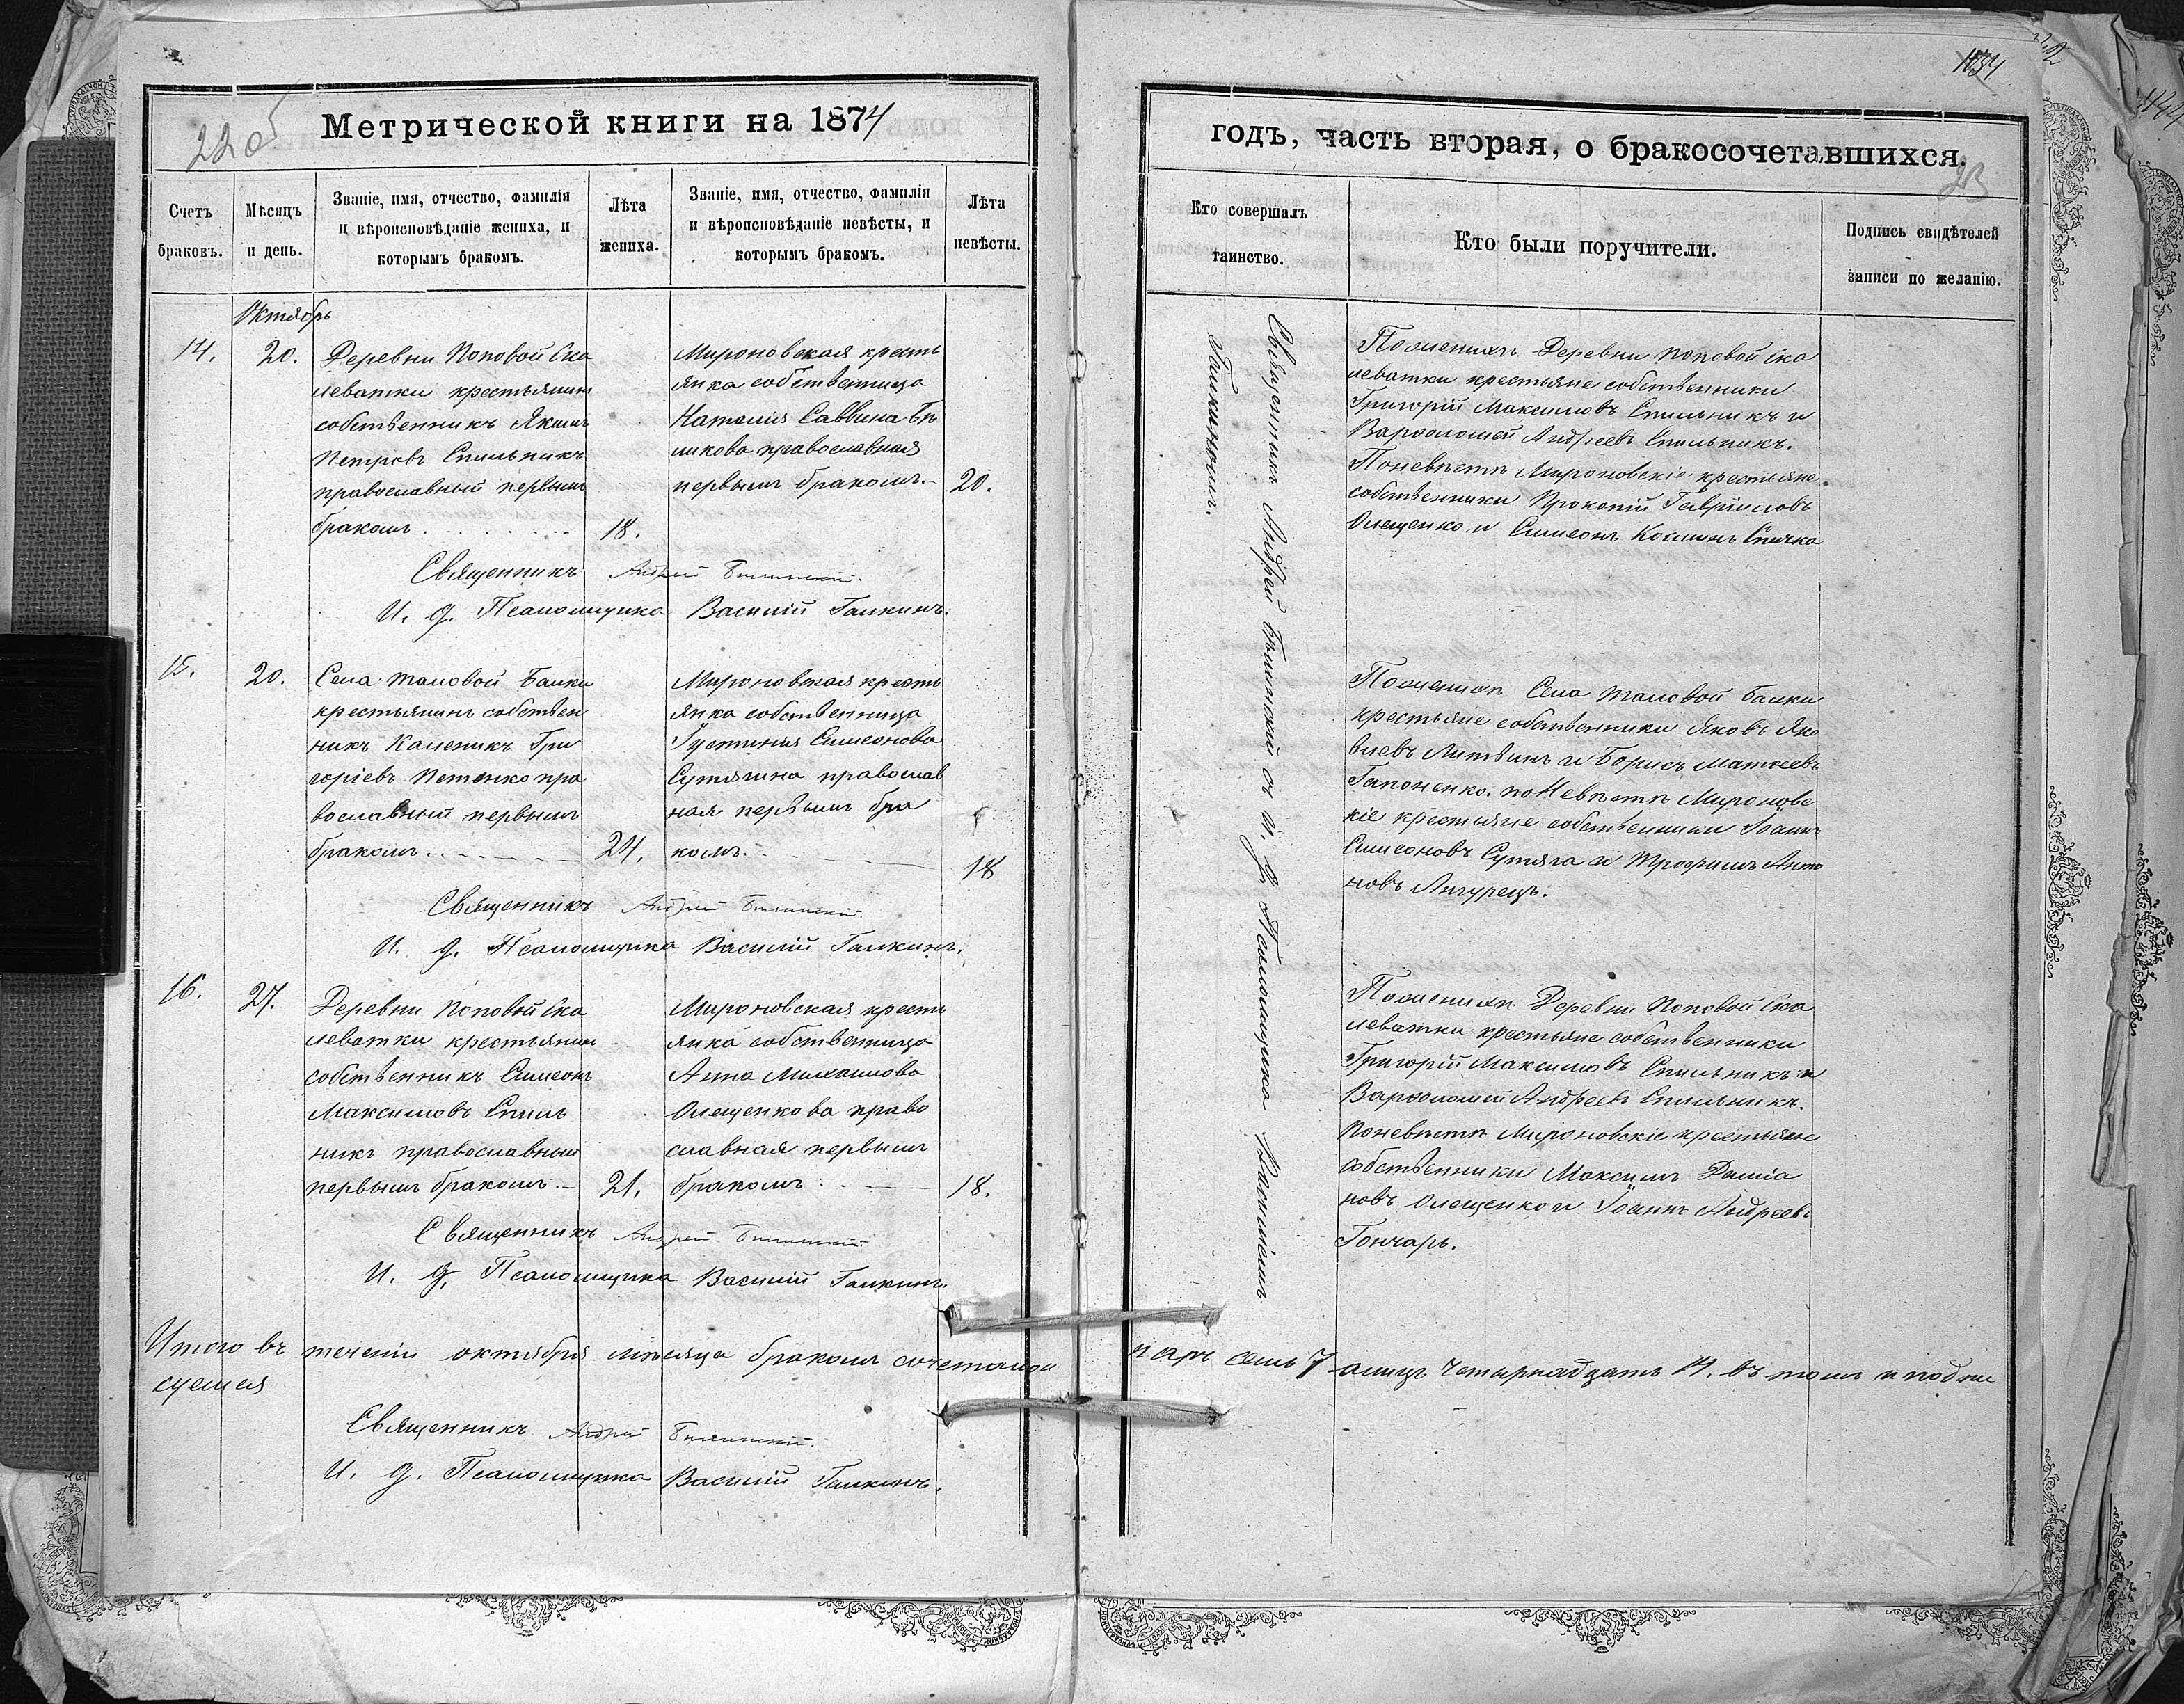 22 об
Метрической книги на 1874
Счетъ браковъ.
Мѣсяцъ и день.
Званіе, имя, отчество, фамилія
и вѣроисповѣданіе жениха, и
которымъ бракомъ.
Лѣта жениха.
Званіе, имя, отчество, фамилія
и вѣроисповѣданіе невѣсты, и
которымъ бракомъ.
Лѣта невѣсты.
Октябрь
14.
20.
Деревни Поповой Ска
леватки крестьянинъ
собственникъ Якимъ
Петровъ Спильникъ
православный первымъ
бракомъ
18.
Мироновская кресть
янка собственница
Наталія Саввина Бѣ
ликова православная
первымъ бракомъ.
20.
Священникъ Андрей
И. д. Псаломщика Василій Галкинъ.
15.
20.
Села Таловой Балки
крестьянинъ собствен
никъ Каленикъ Гри
горіевъ Петенко пра
вославный первымъ
бракомъ.
24.
Мироновская кресть
янка собственница
Іустинія Симеонова
Сутягина православ
ная первымъ бра
комъ.
18
Священникъ Андрей
И. д. Псаломщика Василій Галкинъ.
16.
27.
Деревни Поповой Ска
леватки крестьянинъ
собственникъ Симеонъ
Максимовъ Спиль
никъ православный
первымъ бракомъ.
21.
Мироновская кресть
янка собственница
Анна Михаилова
Олещенкова право
славная первымъ
бракомъ
18.
Священникъ Андрей
И. д. Псаломщика Василій Галкинъ.
Итого въ теченіи октября мѣсяца бракомъ сочеталось паръ семь 7 лицъ четырнадцать 14. въ томъ и подпи
суемся
Священникъ Андрей
И. д. Псаломщика Василій Галкинъ.
23
годъ, часть вторая, о бракосочетавшихся.
Кто совершалъ
таинство.
Кто были поручители.
Подпись свидѣтелей
записи по желанію.
Священникъ Андрей съ и. д. Псаломщика Василіемъ
Галкиномъ.
По женихѣ Деревни Поповой Ска
леватки крестьяне собственники
Григорій Максимовъ Спильникъ и
Варѳоломей Андреевъ Спильникъ.
По невѣстѣ Мироновскіе крестьяне
собственники Прокопій Гавріиловъ
Олещенко и Симеонъ Косминъ Спичка
По женихѣ Села Таловой Балки
крестьяне собственники Яковъ Яко
влевъ Литвинъ и Борисъ Матѳеевъ
Гапоненко. по Невѣстѣ Миронов
скіе крестьяне собственники Іоаннъ
Симеоновъ Сутяга и Трофимъ Анто
новъ
По женихѣ Деревни Поповой Ска
леватки крестьяне собственники
Григорій Максимовъ Спильникъ и
Варѳоломей Андреевъ Спильникъ.
По невѣстѣ Мироновскіе крестьяне
собственники Максимъ Даміа
новъ Олещенко и Іоаннъ Андреевъ
Гончаръ.